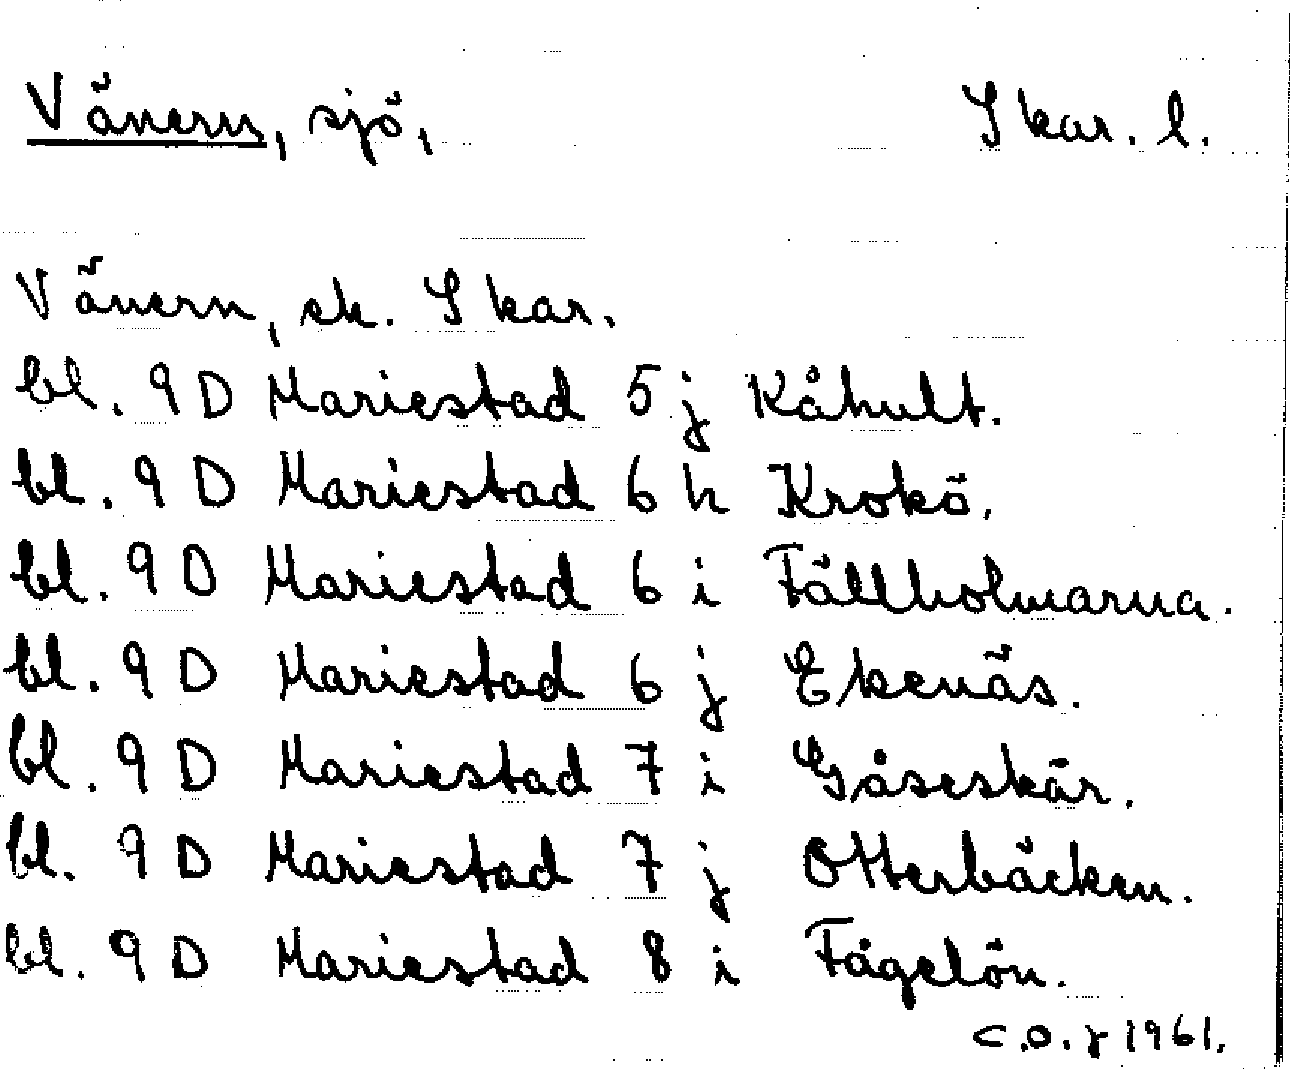 Vänern, sjö, Skar. l.
Vänern, ek. Skar.
bl. 9 D Mariestad 5 j Kåhult.
bl. 9 D Mariestad 6 h Krokö.
bl. 9 D Mariestad 6 i Fällholmarna.
bl. 9 D Mariestad 6 j Ekenäs.
bl. 9 D Mariestad 7 i Gåseskär.
bl. 9 D Mariestad 7 j Otterbäcken.
bl. 9 D Mariestad 8 i Fågelön.
1961.